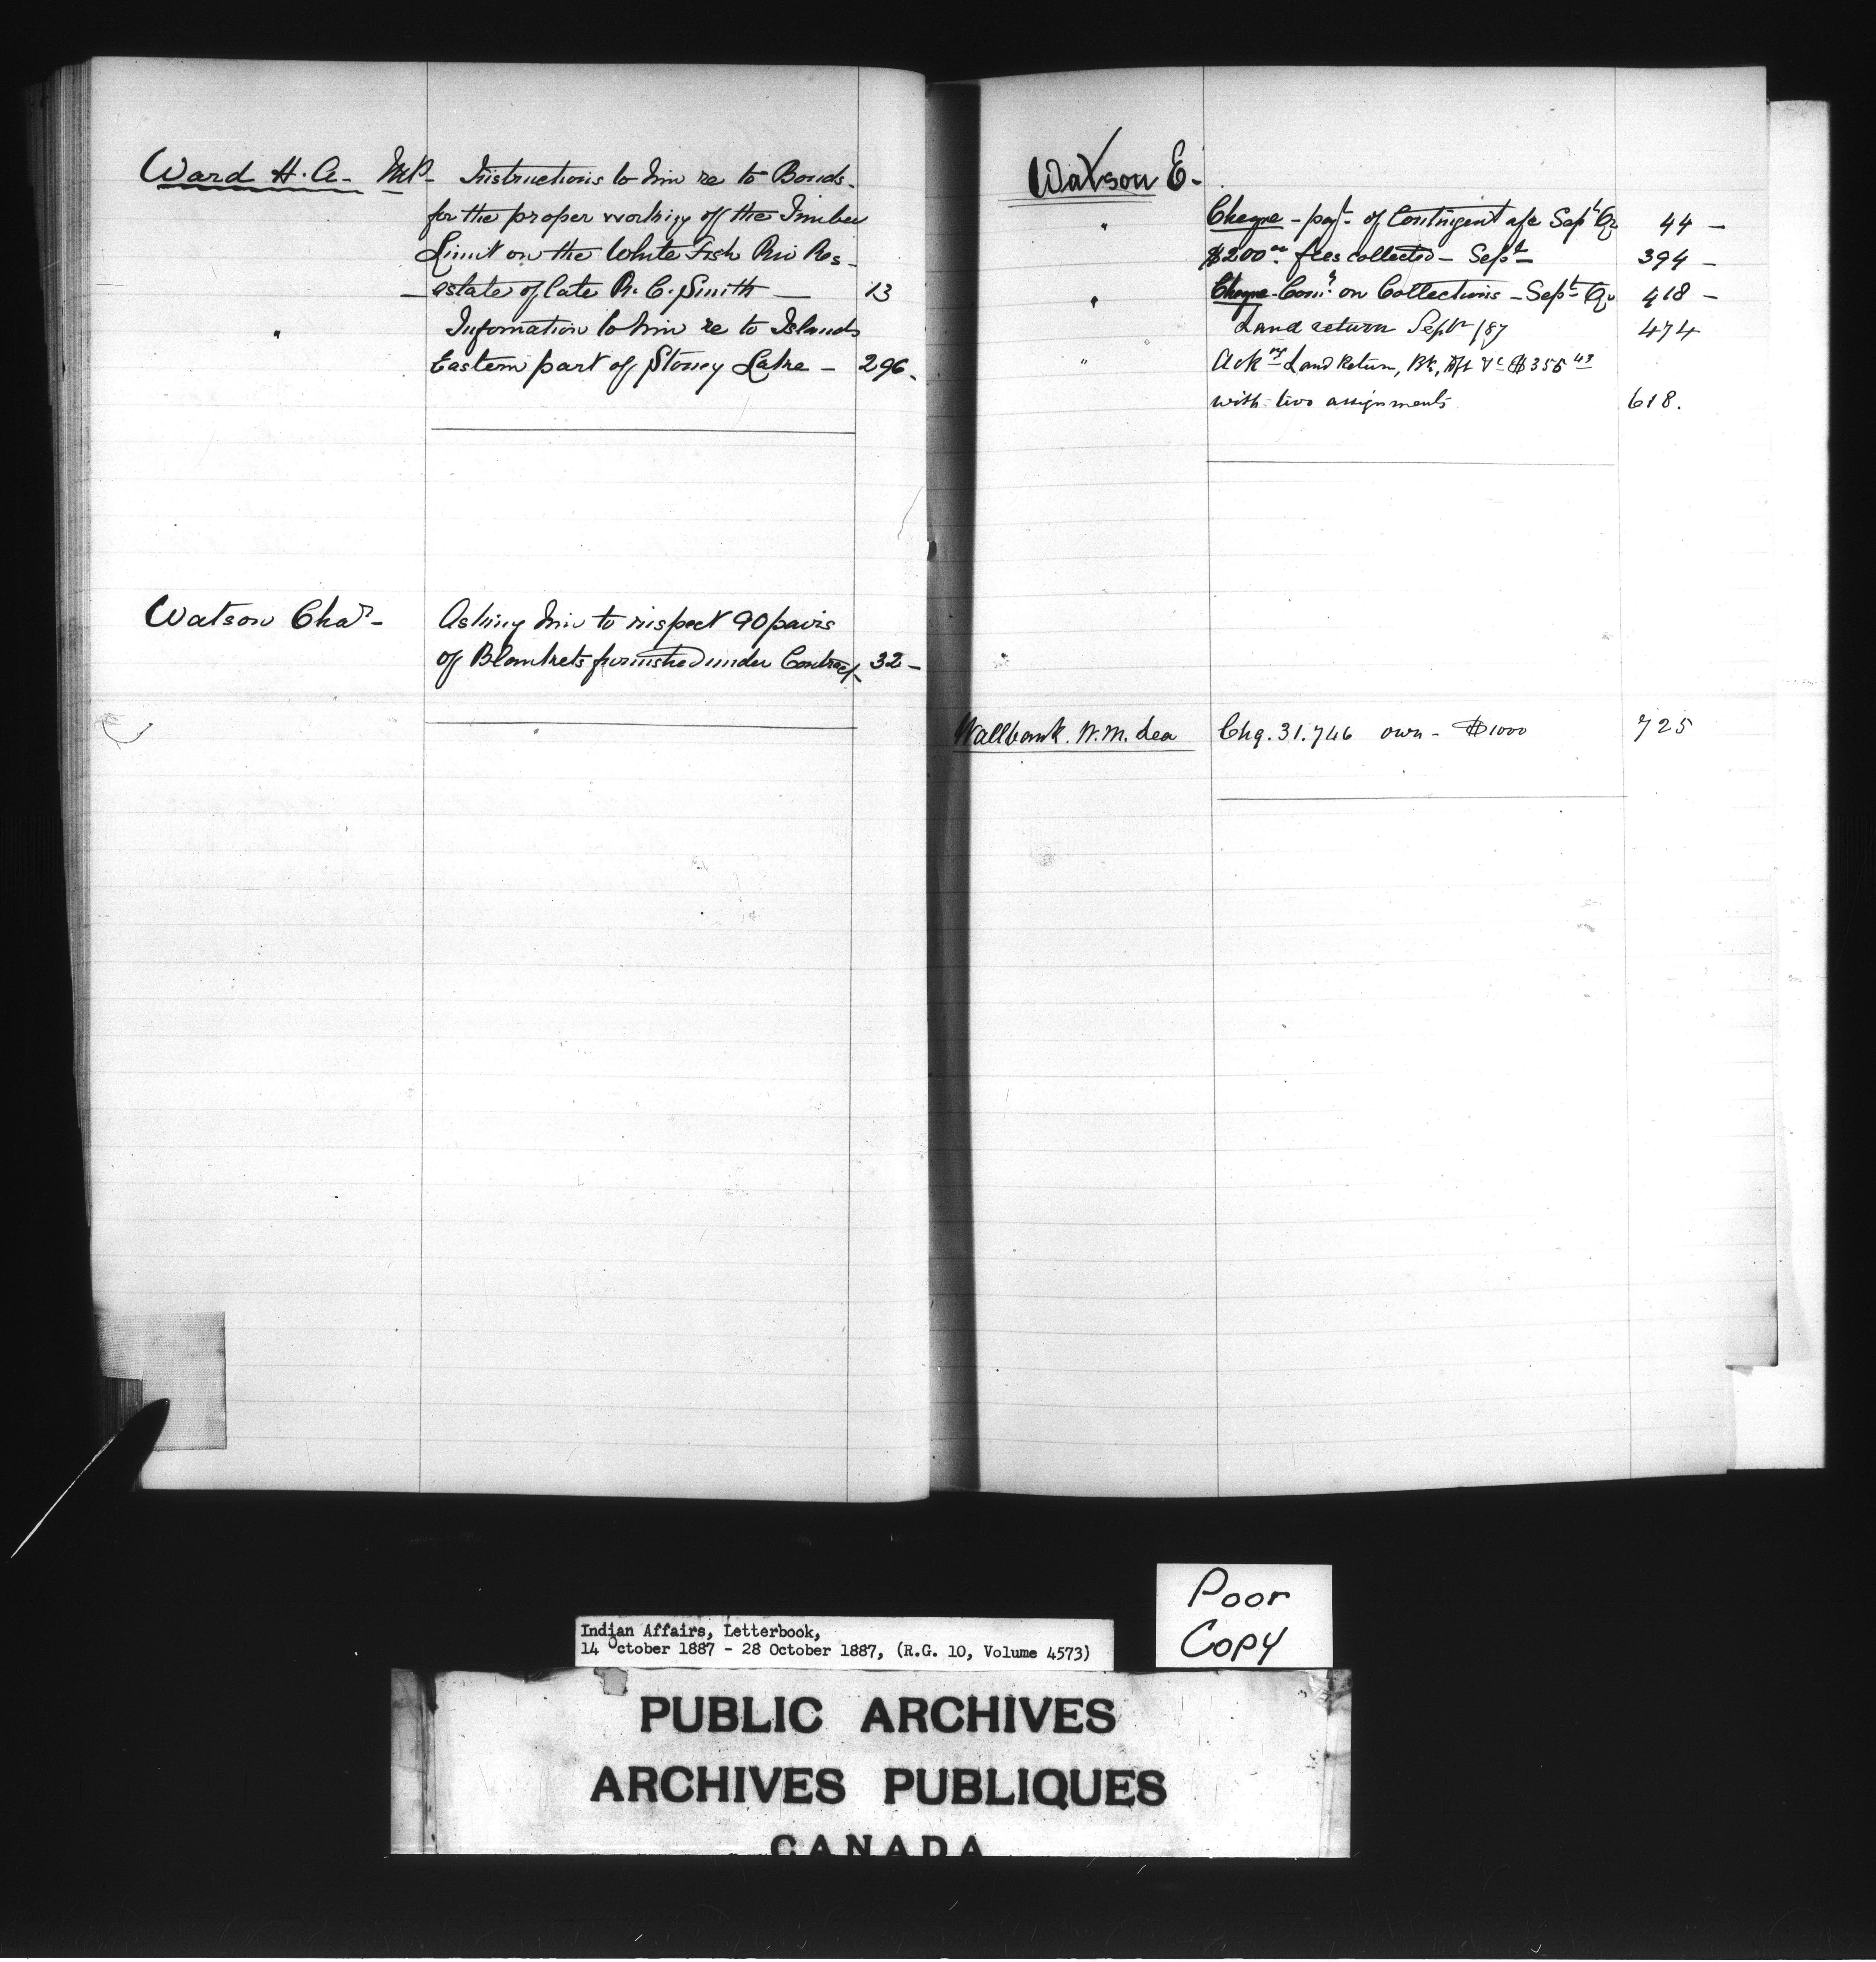 Ward H. A. M.P. Instructions to him re to Bonds
for the proper working of the Timber
Limit on the White Fish Riv Res
estate of late R. C. Smith — 13
" Information to him re to Islands
Eastern part of Stoney Lake — 296.
Watson Chas - Asking him to inspect 90 pairs
of Blankets furnished under Contract 32 —
Watson E.
" Cheque - payt. of Contingent a/c Sept Qr 44 —
$200 00 fees collected — Sept 394 —
" Cheque Comn on Collections — Sept Qr 418 —
Land return Sept /87 474
" Ackng Land Return, Bk, Dft &c $355 43
with two assignments 618.
Wallbank W. M. Lea Chq. 31.746 own - $1000 725
Poor
Copy
Indian Affairs, Letterbook,
14 October 1887 - 28 October 1887, (R.G. 10, Volume 4573)
PUBLIC ARCHIVES
ARCHIVES PUBLIQUES
CANADA